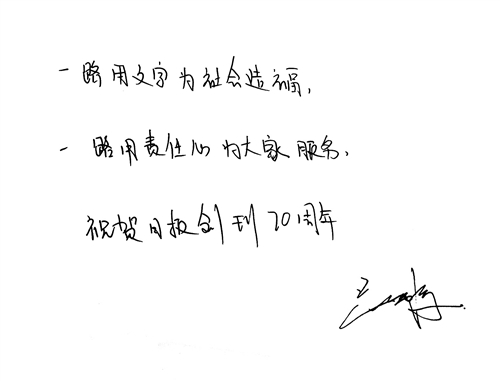 一路用文字为社会造福,
一路用责任心为大家服务.
祝贺日报创刊20周年